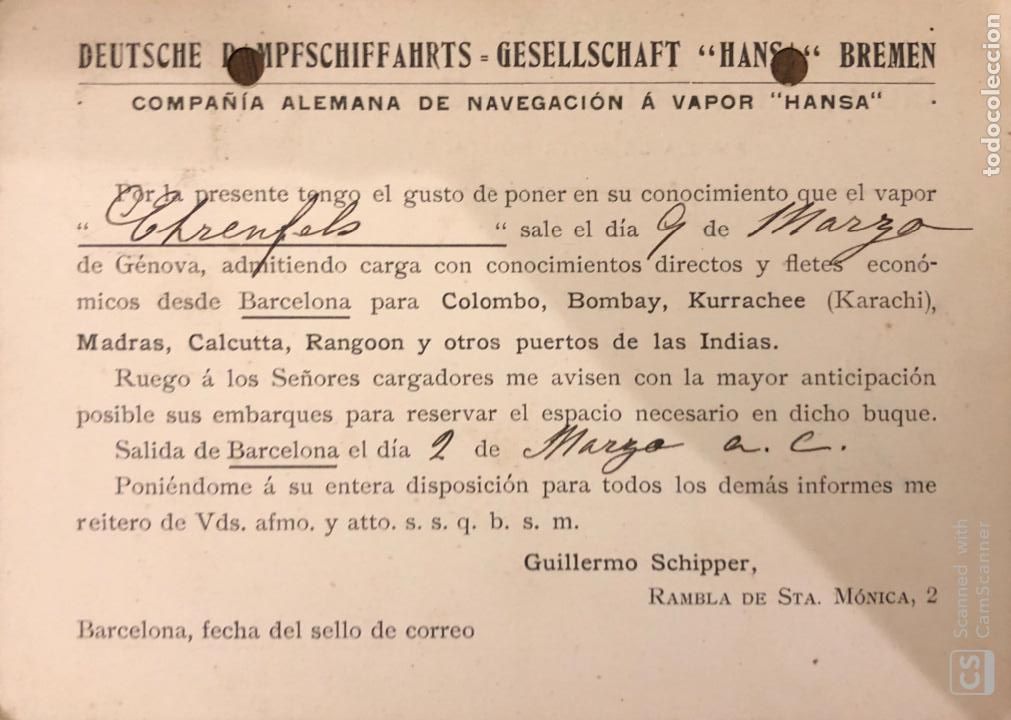 DEUTSCHE DAMPFSCHIFFAHRTS = GESELLSCHAFT “HANSA“ BREMEN
COMPAÑÍA ALEMANA DE NAVEGACIÓN Á VAPOR "HANSA"
Por la presente tengo el gusto de poner en su conocimiento que el vapor
“ Ehrenfels “ sale el día 9 de Marzo
de Génova, admitiendo carga con conocimientos directos y fletes econó-
micos desde Barcelona para Colombo, Bombay, Kurrachee (Karachi),
Madras, Calcutta, Rangoon y otros puertos de las Indias.
Ruego á los Señores cargadores me avisen con la mayor anticipación
posible sus embarques para reservar el espacio necesario en dicho buque.
Salida de Barcelona el día 2 de Marzo a. c.
Poniéndome á su entera disposición para todos los demás informes me
reitero de Vds. afmo. y atto. s. s. q. b. s. m.
Guillermo Schipper,
RAMBLA DE STA. MÓNICA, 2
Barcelona, fecha del sello de correo
todocoleccion
CS Scanned with
CamScanner